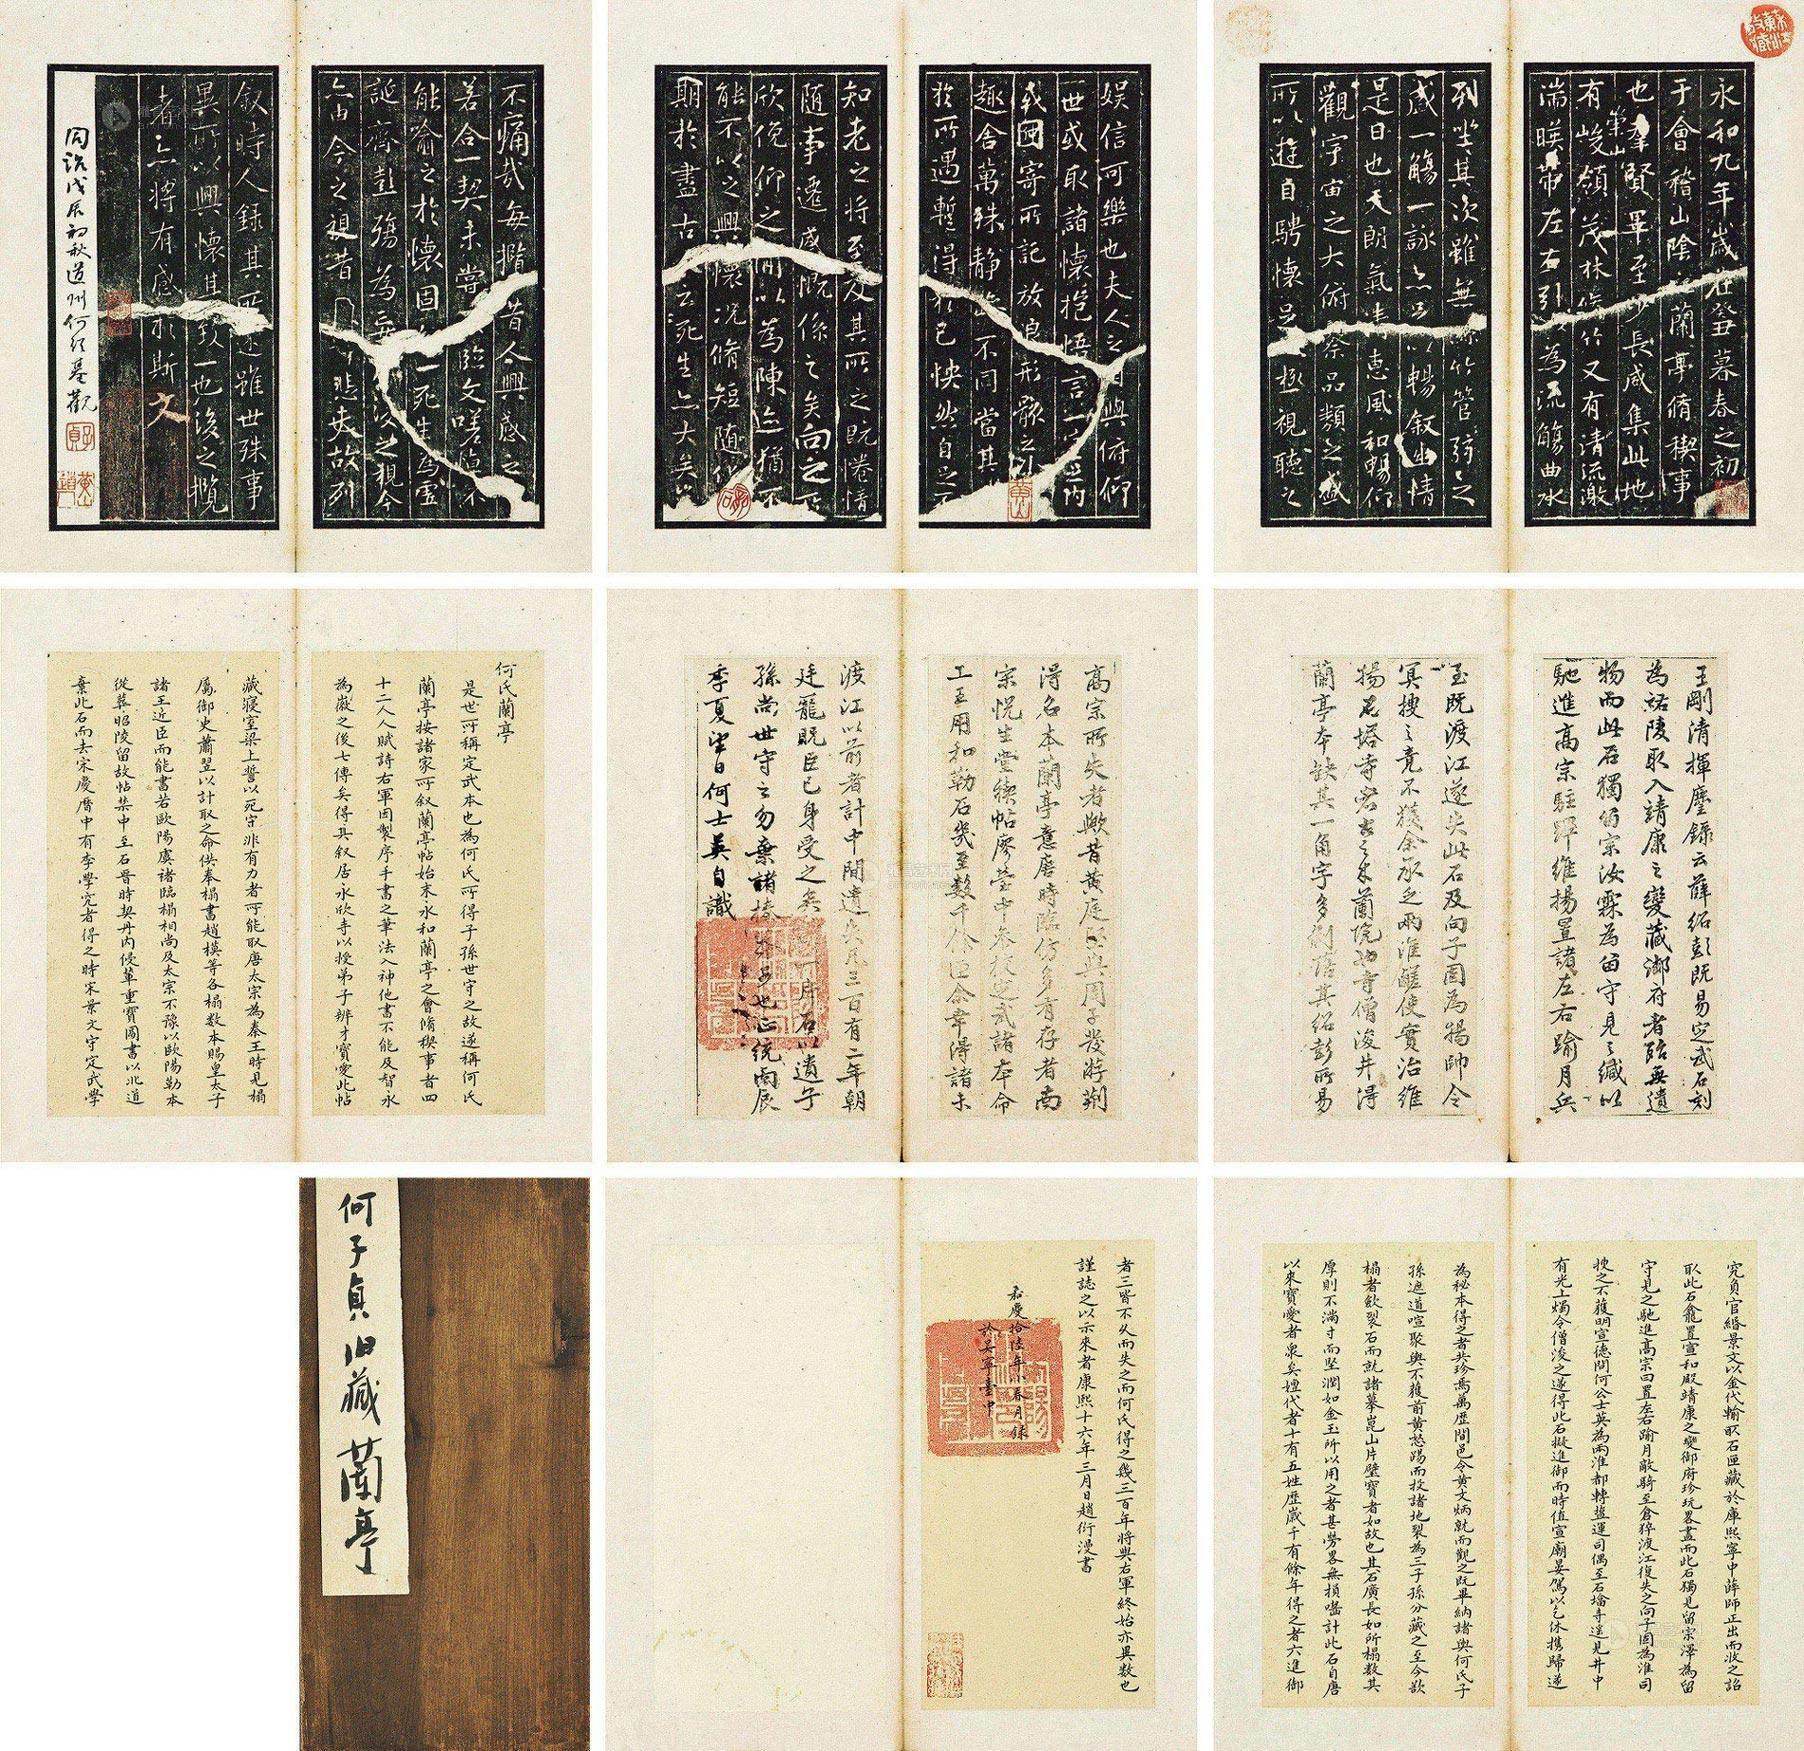 永和九年歲在癸丑暮春之初
于會稽山陰之蘭亭脩稧事
也羣賢畢至少長咸集此地
崇山
有峻領茂林脩竹又有清流激
湍暎帶左右引以為流觴曲水
列坐其次雖無絲竹管弦之
盛一觴一詠亦足以暢叙幽情
是日也天朗氣清惠風和暢仰
觀宇宙之大俯察品類之盛
所以遊目騁懷足以極視聽之
娛信可樂也夫人之相與俯仰
世或取諸懷抱悟言一室之內
或因寄所託放浪形骸之外
趣舍萬殊靜躁不同當其
於所遇暫得於己快然自足
知老之將至及其所之既惓情
隨事遷感慨係之矣向之所
欣俛仰之間以為陳迹猶不
能不以之興懷況脩短隨化
期於盡古人云死生亦大矣
不痛哉每攬昔人興感之
若合一契未嘗臨文嗟悼不
能喻之於懷固一死生為虛
誕齊彭殤為妄後之視今
亦由今之視昔悲夫故列
叙時人錄其所述雖世殊事
異所以興懷其致一也後之攬
者亦將有感於斯文
同治戊辰初秋道州何紹基觀
王剛清揮麈錄云薛紹彭既易定武石刻
為祐陵取入靖康之變藏御府者殆無遺
物而此石獨留宗汝霖為留守見之緘以
馳進高宗駐蹕維揚置諸左右踰月兵
至既渡江遂失此石及向子固為揚帥令
冥搜之竟不獲余承乏兩淮鹺使實治維
揚石塔寺宕古之木蘭院也寺僧浚井得
蘭亭本缺其一角字多剝落其紹彭所易
高宗所失者歟昔黃庭堅與周子發游荊
得名本蘭亭意磨時臨仿多有存者南
宗悅生堂稧帖廖瑩中參校定武諸本命
工王用和勒石幾至數千餘臣余幸得諸未
渡江以前者計中間遺失凡三百有二年朝
廷寵既臣已身受之矣石以遺子
孫尚世守之勿棄諸榛也正統丙辰
季夏望日何士英自識
何氏蘭亭
是世所稱定武本也為何氏所得子孫世守之故遂稱何氏
蘭亭按諸家所叙蘭亭帖始末永和蘭亭之會脩稧事者四
十二人人賦詩右軍因製序手書之筆法入神他書不能及智永
為嶷之後七傳矣得其叙居永欣寺以授弟子辨才寶愛此帖
藏寢室梁上誓以死守非有力者可能取唐太宗為秦王時見搨
屬御史蕭翌以計取之命供奉搨書趙模等各搨數本賜皇太子
諸王近臣而能書若歐陽虞褚臨搨相尚及太宗不豫以歐陽勒本
從葬昭陵留故帖禁中至石晉時契丹內侵輦重寶圖書以北道
棄此石而去宋慶曆中有李學究者得之時宋景文守定武學
究負官緡景文以金代輸取石匣藏於庫熙寧中薛師正出而收之詔
取此石龕置宣和殿靖康之變御府珍玩畧盡而此石獨見留宗澤為留
守見之馳進高宗曰置左右踰月敵騎至倉猝渡江復失之向子固為淮司
挾之不獲明宣德間何公士英為兩淮都轉鹽運司偶至石墖寺遙見井中
有光上燭令僧浚之遂得此石擬進御而時值宣廟晏駕以乞休携歸遂
為秘本得之者共珍焉萬歷間邑令黃文炳就而觀之既畢納諸輿何氏子
孫遮道喧聚輿不獲前黃怒踢而投諸地裂為三子孫分藏之至今欲
搨者斂裂石而就諸摹崑山片壁寶者如故也其石廣長如所搨數其
厚則不滿寸而堅潤如金玉所以用之者甚勞畧無損嚙計此石自唐
以來寶愛者衆矣嬗代者十有五姓歷歲千有餘年得之者六進御
者三皆不久而失之而何氏得之幾三百年將與右軍終始亦異數也
謹誌之以示來者康熙十六年三月日趙衍漫書
嘉慶拾陸年小春月錄
於吴寧臺中
何子貞旧藏蘭亭